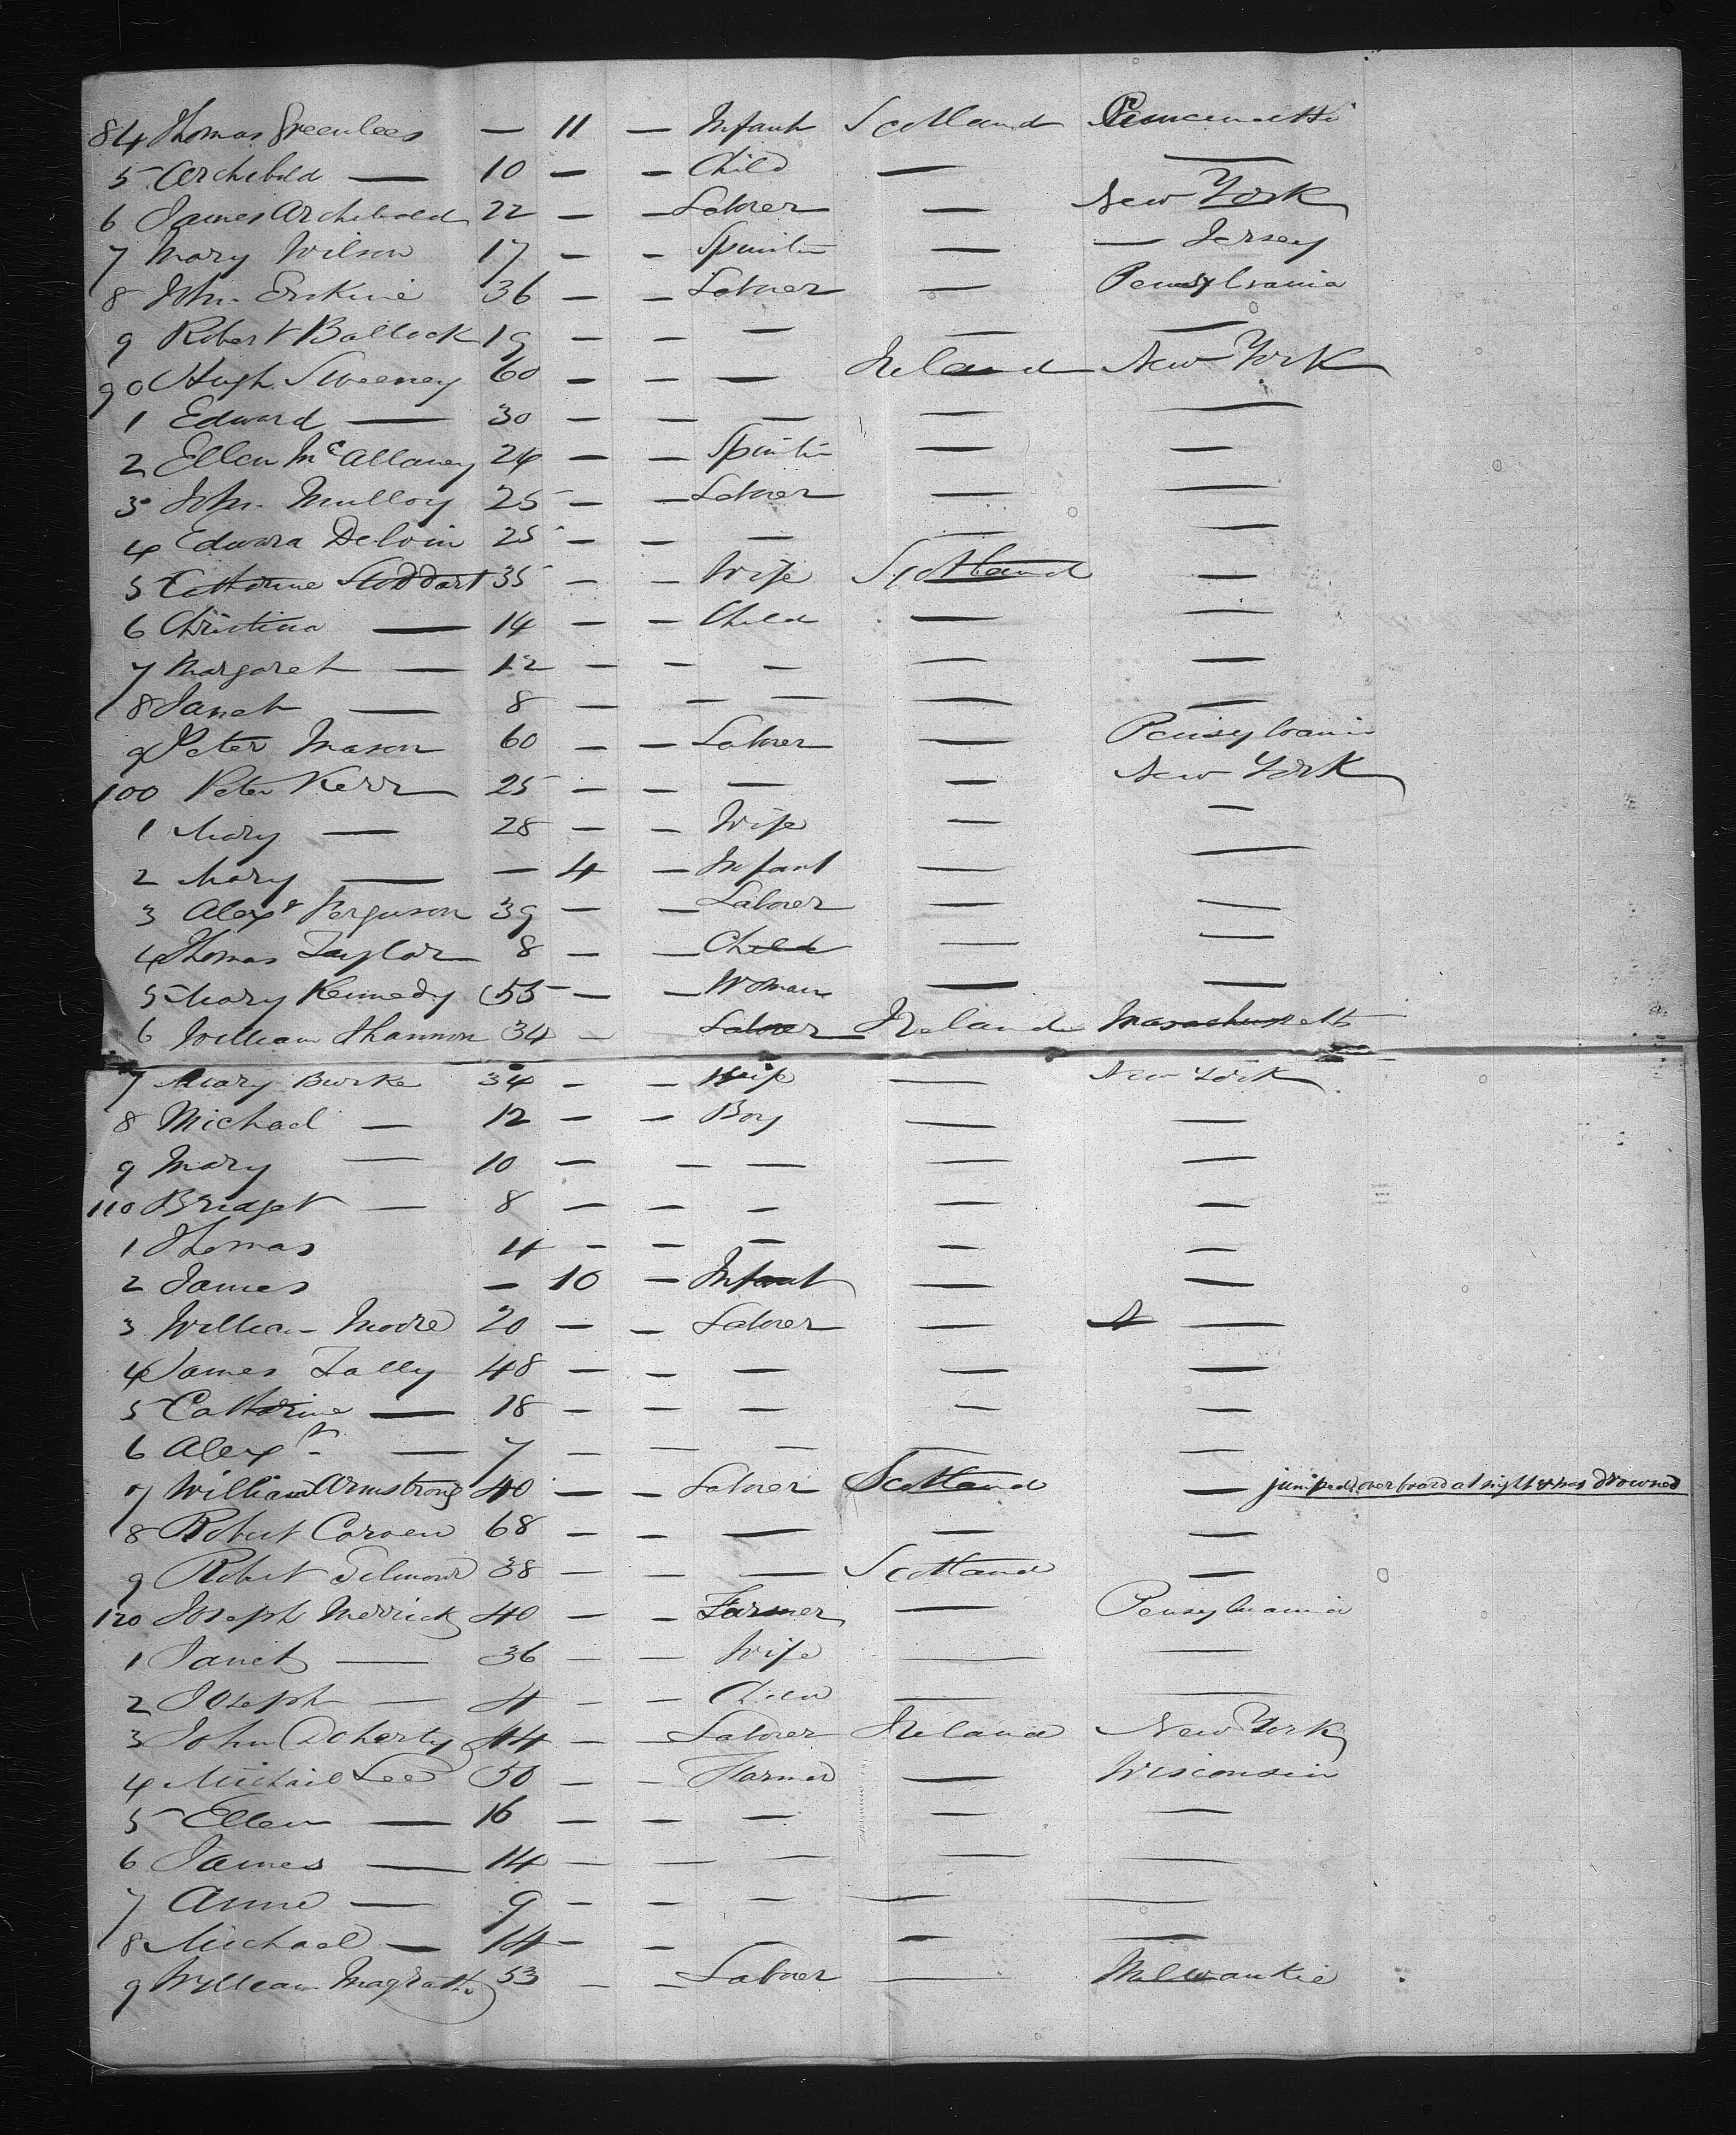 84 Thomas Greenlees — 11 — Infant Scotland Cincinatti
5 Archibald — 10 — — Child — —
6 James Archibald 22 — — Laborer — New York
7 Mary Wilson 17 — — Spinster — — Jersey
8 John Erskine 36 — — Laborer — Pensylvania
9 Robert Ballock 19 — — — — —
90 Hugh Sweeney 60 — — — Ireland New York
1 Edward — 30 — — — — —
2 Ellen McAllaney 24 — — Spinster — —
3 John Mulloy 25 — — Laborer — —
4 Edward Delvin 25 — — — — —
5 Catherine Stoddart 35 — — Wife Scotland —
6 Christina — 14 — — Child — —
7 Margaret — 12 — — — — —
8 Janet — 8 — — — — —
9 Peter Mason 60 — — Laborer — Pensylvania
100 Peter Kerr 25 — — — — New York
1 Mary — 28 — — Wife — —
2 Mary — — 4 — Infant — —
3 Alexr Ferguson 39 — — Laborer — —
4 Thomas Taylor 8 — — Child — —
5 Mary Kennedy 55 — — Woman — —
6 William Shannon 34 — Laborer Ireland Massachusetts
7 Mary Burke 34 — — Wife — New York
8 Michael — 12 — — Boy — —
9 Mary — 10 — — — — —
110 Bridget — 8 — — — — —
1 Thomas 4 — — — — —
2 James — 10 — Infant — —
3 William Moore 20 — — Laborer — —
4 James Lally 48 — — — — —
5 Catherine — 18 — — — — —
6 Alexr — 7 — — — — —
7 William Armstrong 40 — — Laborer Scotland — jumped overboard at night & was drowned
8 Robert Carven 68 — — — — —
9 Robert 38 — — — Scotland —
120 Joseph Merrick 40 — — Farmer — Pensylvania
1 Janet — 36 — — Wife — —
2 Joseph — 4 — — Child — —
3 John Doherty 44 — — Laborer Ireland New York
4 Michael Lee 50 — — Farmer — Wisconsin
5 Ellen — 16 — — — — —
6 James — 14 — — — — —
7 Anne — 9 — — — — —
8 Michael — 14 — — — — —
9 William Magrath 53 — — Laborer — Milwaukie